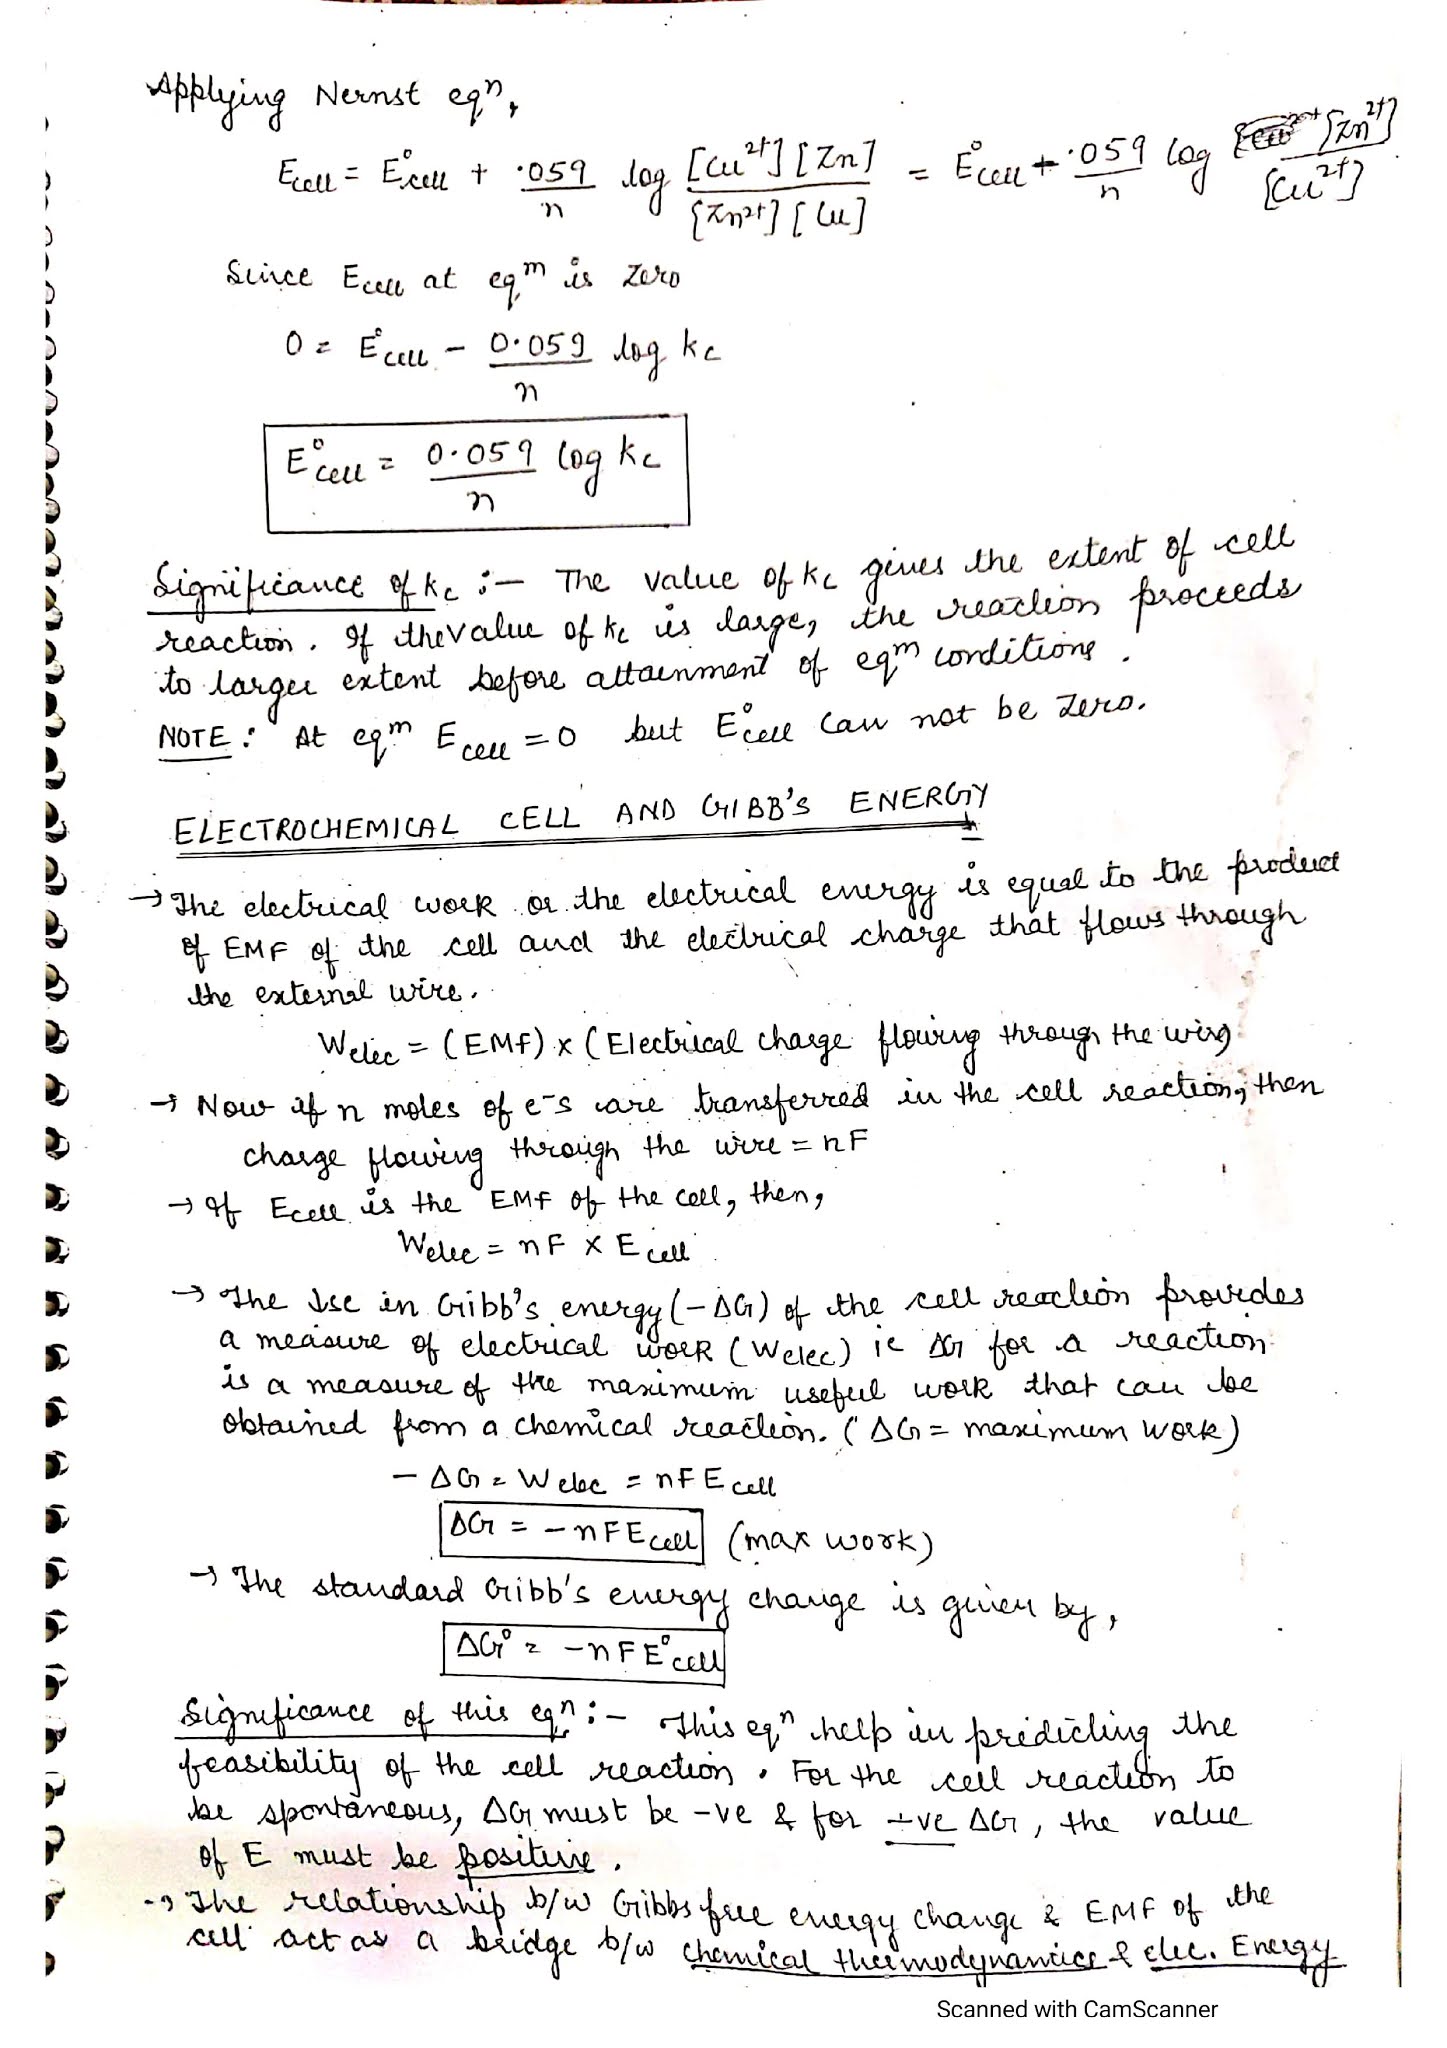 Applying Nernst eqⁿ,
Ecell = E°cell + .059/n log [Cu²⁺][Zn]/[Zn²⁺][Cu] = E°cell + .059/n log [Zn²⁺]/[Cu²⁺]
Since Ecell at eqᵐ is zero
0 = E°cell - 0.059/n log kc
E°cell = 0.059/n log kc
Significance of kc :- The value of kc gives the extent of cell
reaction. If the value of kc is large, the reaction proceeds
to larger extent before attainment of eqᵐ conditions.
NOTE: At eqᵐ Ecell = 0 but E°cell can not be zero.
ELECTROCHEMICAL CELL AND GIBB'S ENERGY
→ The electrical work or the electrical energy is equal to the product
of EMF of the cell and the electrical charge that flows through
the external wire.
Welec = (EMF) x (Electrical charge flowing through the wire)
→ Now if n moles of e⁻s are transferred in the cell reaction, then
charge flowing through the wire = nF
→ If Ecell is the EMF of the cell, then,
Welec = nF x Ecell
→ The ↓se in Gibb's energy (-ΔG) of the cell reaction provides
a measure of electrical work (Welec) ie ΔG for a reaction
is a measure of the maximum useful work that can be
obtained from a chemical reaction. (ΔG = maximum work)
- ΔG = Welec = nFEcell
ΔG = -nFEcell (max work)
→ The standard Gibb's energy change is given by,
ΔG° = -nFE°cell
Significance of this eqⁿ :- This eqⁿ help in predicting the
feasibility of the cell reaction. For the cell reaction to
be spontaneous, ΔG must be -ve & for +ve ΔG, the value
of E must be positive.
→ The relationship b/w Gibbs free energy change & EMF of the
cell act as a bridge b/w chemical thermodynamics & elec. Energy
Scanned with CamScanner